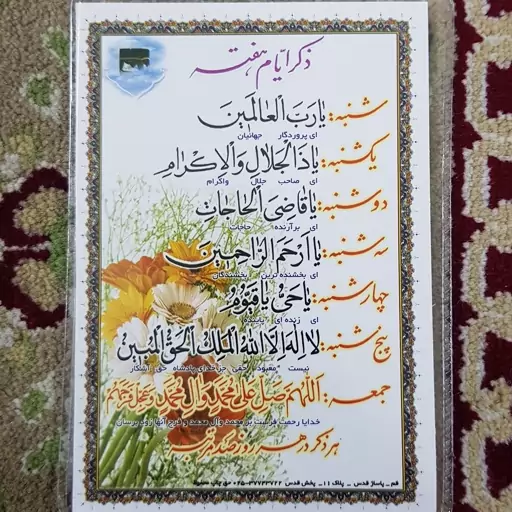 ذکر ایّام هفته
شنبه: یا رَبَ الْعالَمینَ
ای پروردگار جهانیان
یکشنبه: یا ذَالْجَلالِ وَالْاِکْرامِ
ای صاحب جلال واکرام
دوشنبه: یا قاضِیَ الْحاجاتِ
ای برآرنده حاجات
سه شنبه: یا اَرْحَمَ الرّاحِمینَ
ای بخشنده ترین بخشندگان
چهارشنبه: یا حَیُّ یا قَیّومُ
ای زنده ای پاینده
پنج شنبه: لا اِلهَ اِلَّا اللهُ الْمَلِکُ الْحَقُّ الْمُبینُ
نیست معبود حقی جز خدای پادشاه حق آشکار
جمعه: اَللّهُمَّ صَلِّ عَلی مُحَمَّدٍ وَآلِ مُحَمَّدٍ وَعَجِّلْ فَرَجَهُمْ
خدایا رحمت فرست بر محمد وآل محمد و فرج آنها زود برسان
هر ذکر در هر روز صد مرتبه
قم _ پاساژ قدس _ پلاک ۱۱ _ پخش قدس ۳۷۷۴۳۷۲۲-۰۲۵